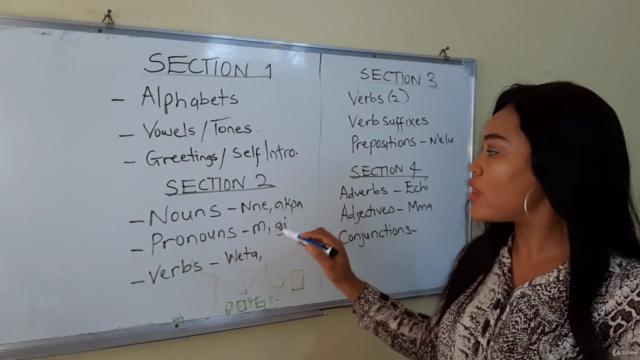 SECTION 1
- Alphabets
- Vowels/Tones
- Greetings/Self Intro.
SECTION 2
- Nouns - Nne, akpa
- Pronouns - m, gi
- Verbs - Weta,
SECTION 3
Verbs (2)
Verb suffixes
Prepositions - N'elu
SECTION 4
Adverbs - Echi
Adjectives - Mma
Conjunctions-